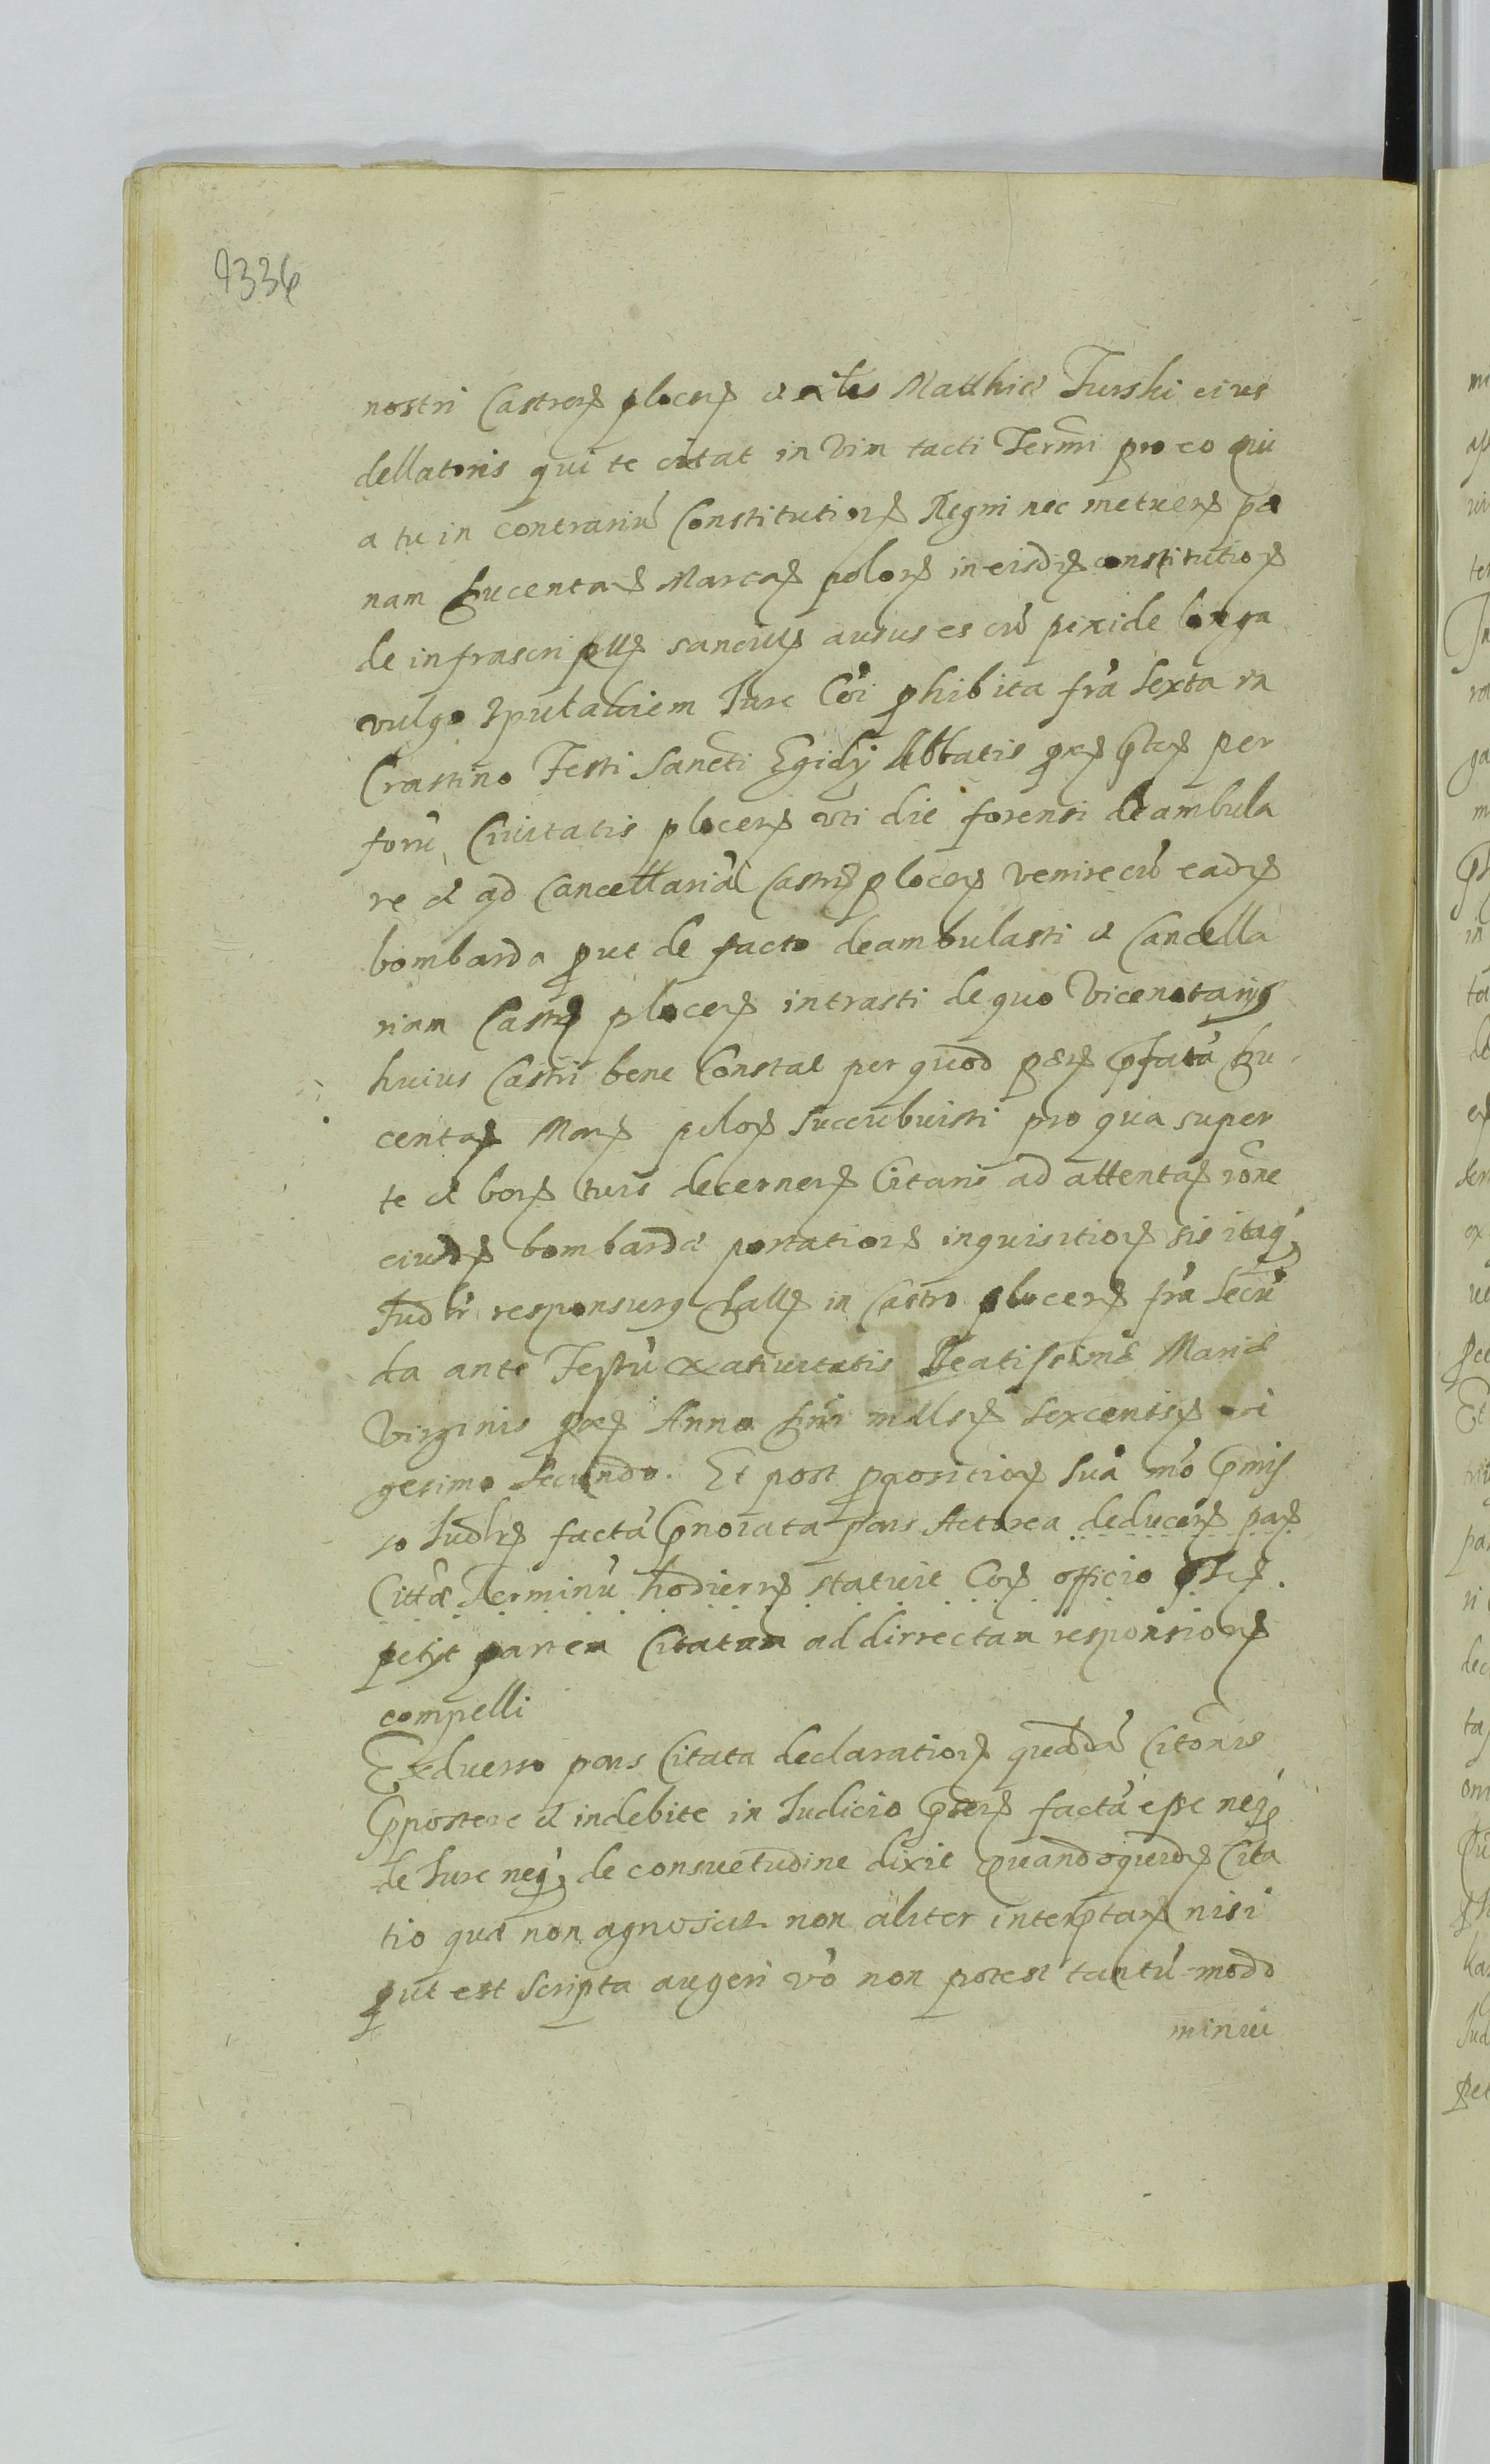 9336
nostri Castren plocen et Matthiæ Turski eius
dellatoris qui te citat in vim tacti Termi pro eo qui
a tu in contrariũ Constitution Regni nec metuen pæ
nam ducentar Marcar polon in eisdem constitution
de infrascriptis sancitis ausus es cũ pixide longa
vulgo Jure Cõi phibita fra sexta in
Crastino Festi Sancti Egidij Abbatis per
forũ Ciuitatis plocen uti die forensi deambula
re et ad Cancellariã Castri plocen venire cũ eadem
bombarda put de facto deambulasti et Cancella
riam Castri plocen intrasti de quo Vicenotarijs
huius Castri bene Constat per quod præfatã du
centar Mar polon succubuisti pro qua super
te et bonis tuis decernen Citaris ad attentan rõne
eiusdem bombardæ portation inquisition sis itaq
Judlr responsurus in Castro plocen fra Secũ
da ante Festũ Natiuitatis Beatissimæ Mariæ
Virginis Anno Dni millesi sexcentesi vi
gesimo Secundo. Et post ppositionem Suã mõ præmis
so Judlr factã prænoiata pars Actorea deducen
Cittæ Terminũ hodiern statuit Cor officio
petijt partem Citatam ad dirrectam responsionem
compelli
Exaduerso pars Citata declaration quandã Citõnis
præpostere et indebite in Judicio præsen factã esse neq
de Jure neq de consuetudine dixit quandoquidem Cita
tio quæ non agnoscit non aliter interptan nisi
put est Scripta augeri vo non potest tantũ modo
minui